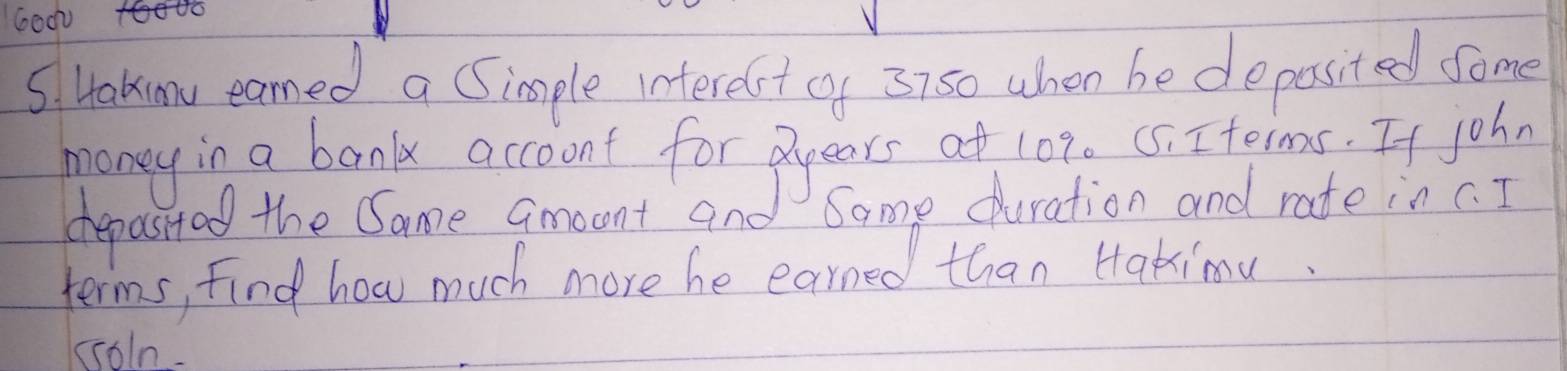 16000
5. Hakimu earned a Simple interest of 3750 when he deposited some
money in a bank account for 2years at 10% S.I terms. If john
deposited the same amount and same duration and rate in C.I
terms, Find how much more he earned than Hakimu.
soln-